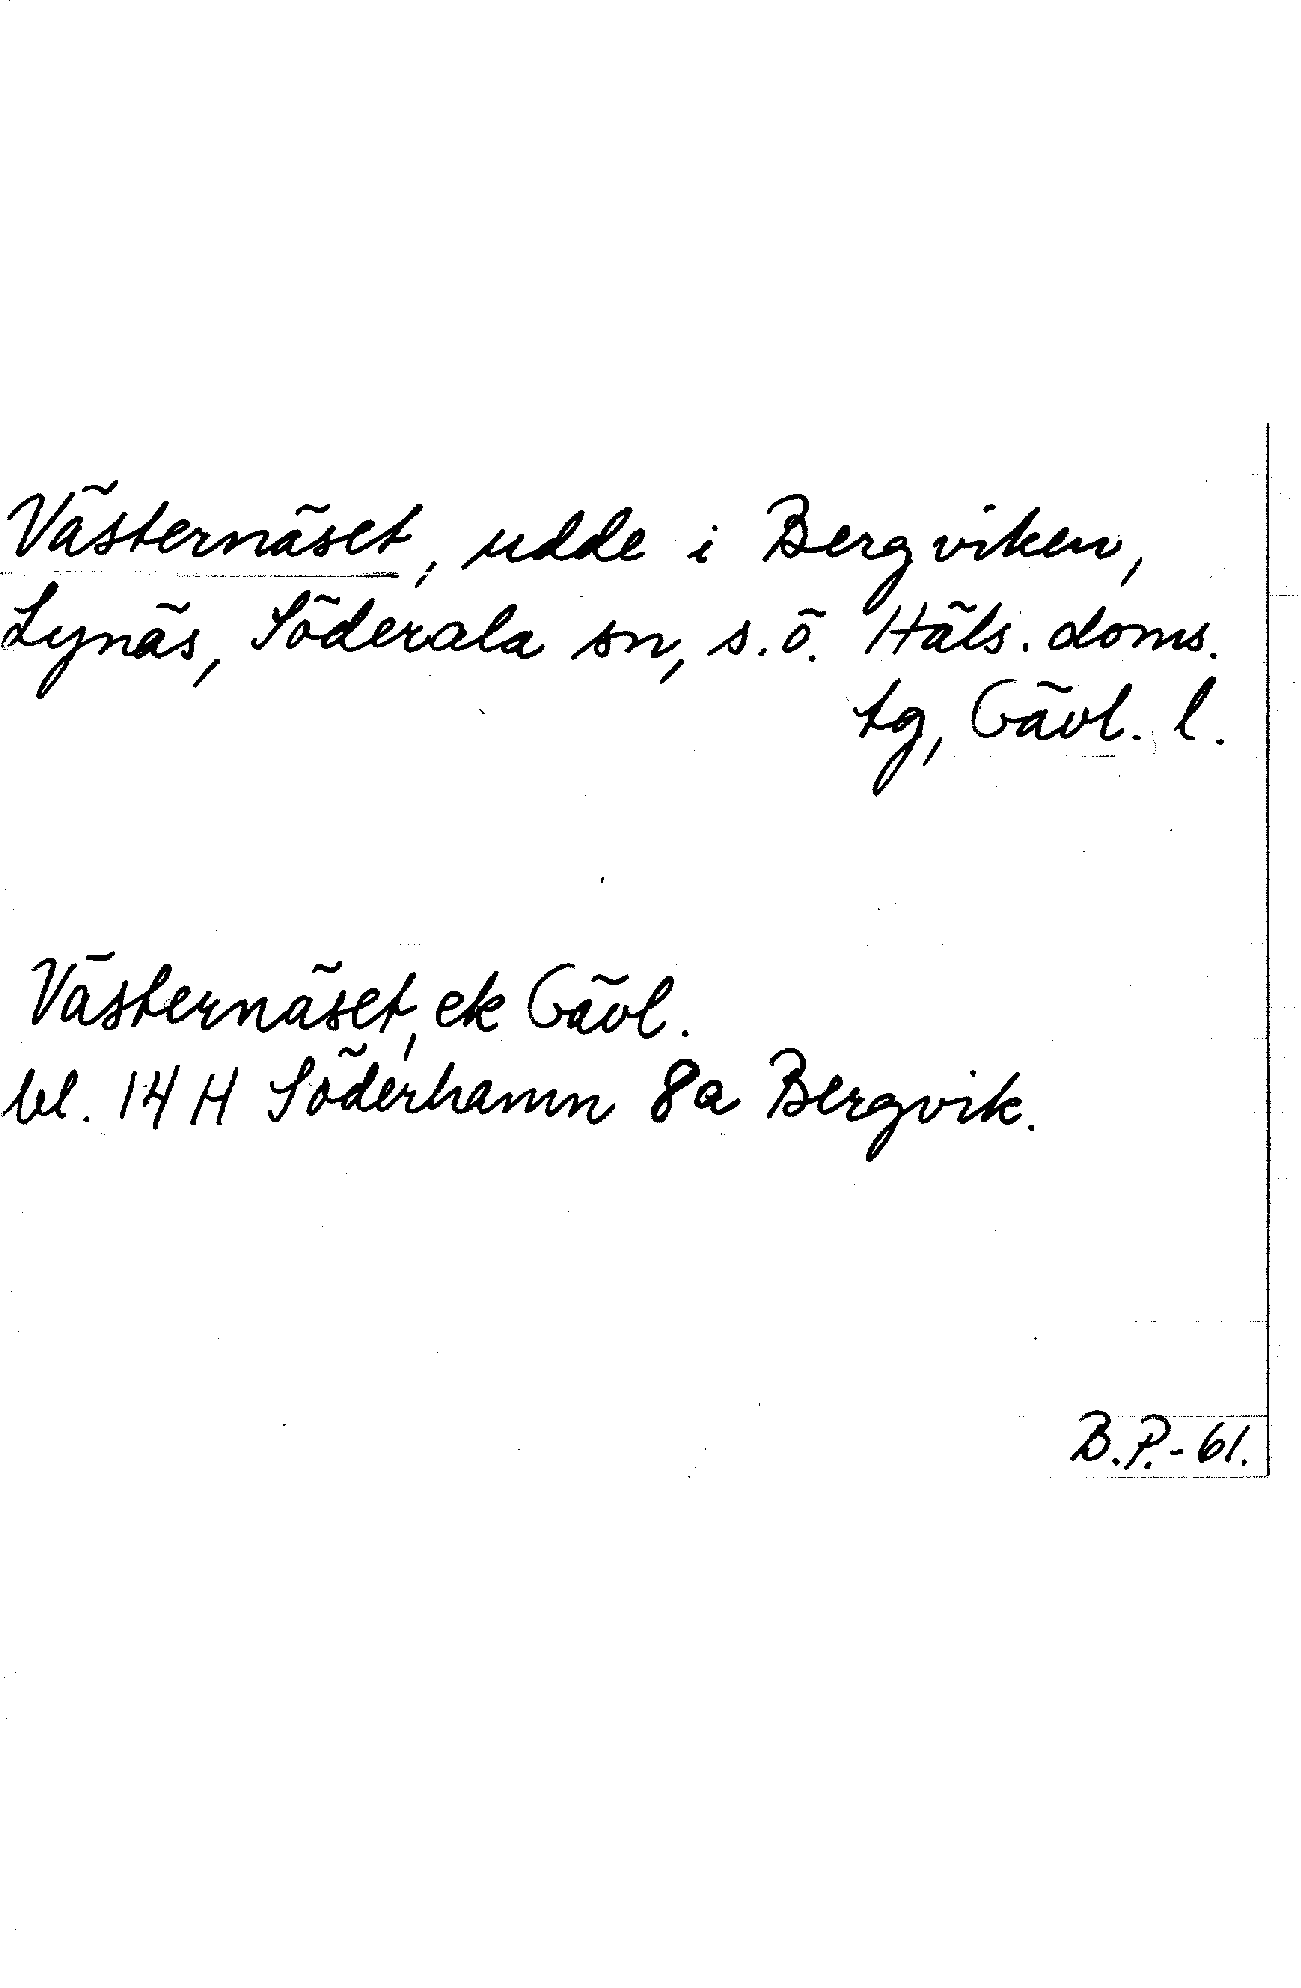 Västernäset, udde i Bergviken,
Lynäs, Söderala sn, s.ö. Häls. doms.
tg, Gävl. l.
Västernäset, ek Gävl.
bl. 14 H Söderhamn 8a Bergvik.
B.P.-61.